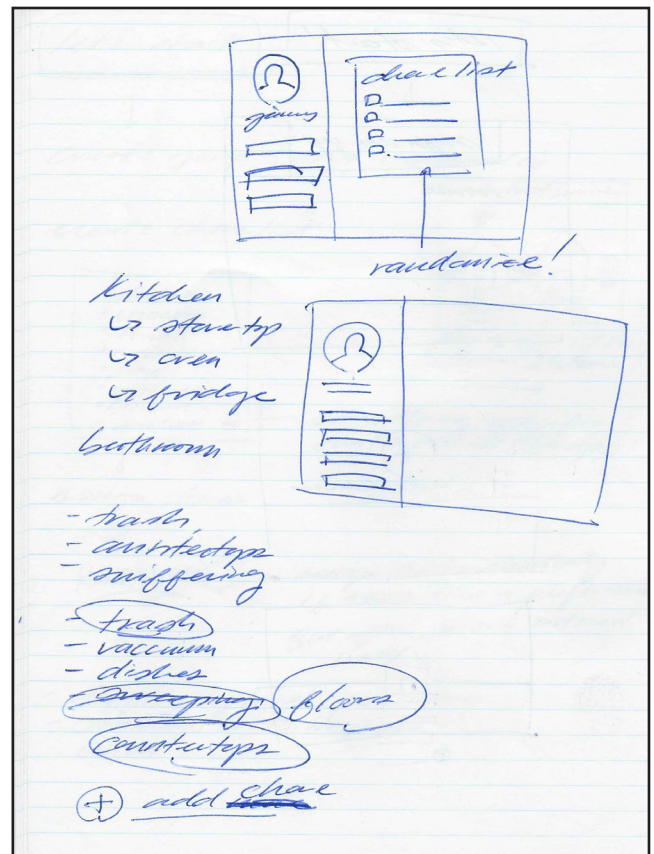 chore list
randomize!
Kitchen
↳ stove top
↳ oven
↳ fridge
bathroom
- trash
- countertops
- swiffering
- trash
- vaccuum
- dishes
- sweeping floors
countertops
+ add chore